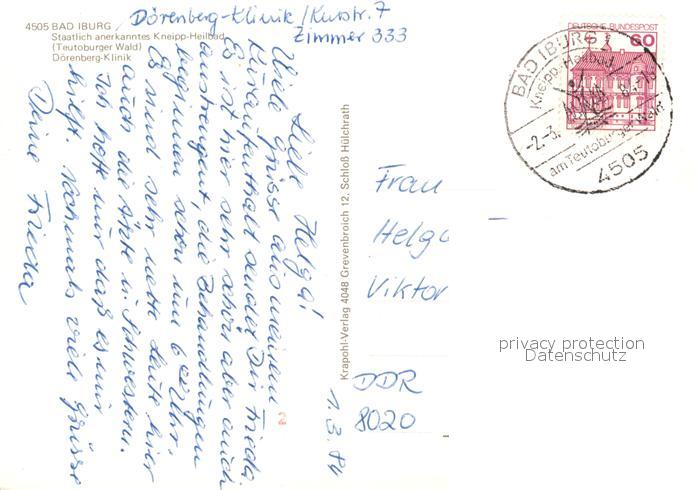 4505 BAD IBURG
Staatlich anerkanntes Kneipp-Heilbad
(Teutoburger Wald)
Dörenberg-Klinik
Dörenberg-Klinik/Kurstr. 7
Zimmer 333
Liebe Helga!
Viele Grüsse aus meinem
Kurenaufenthalt sendet Dir Frieda.
Es ist hier sehr schön aber auch
anstrengent, die Behandlungen
beginnen schon um 6 00 Uhr.
Es sind sehr nette Leute hier
auch die Ärzte u. Schwestern.
Ich hoffe nur daß es mir
hilft. Nochmals viele Grüsse
Deine Frieda
1.3.84
Krapohl-Verlag 4048 Grevenbroich 12, Schloß Hülchrath
DEUTSCHE BUNDESPOST
60
BAD IBURG 1
Kneipp-Heilbad
-2.-3.
am Teutoburger Wald
4505
Frau
Helga
Viktor
DDR
8020
privacy protection
Datenschutz